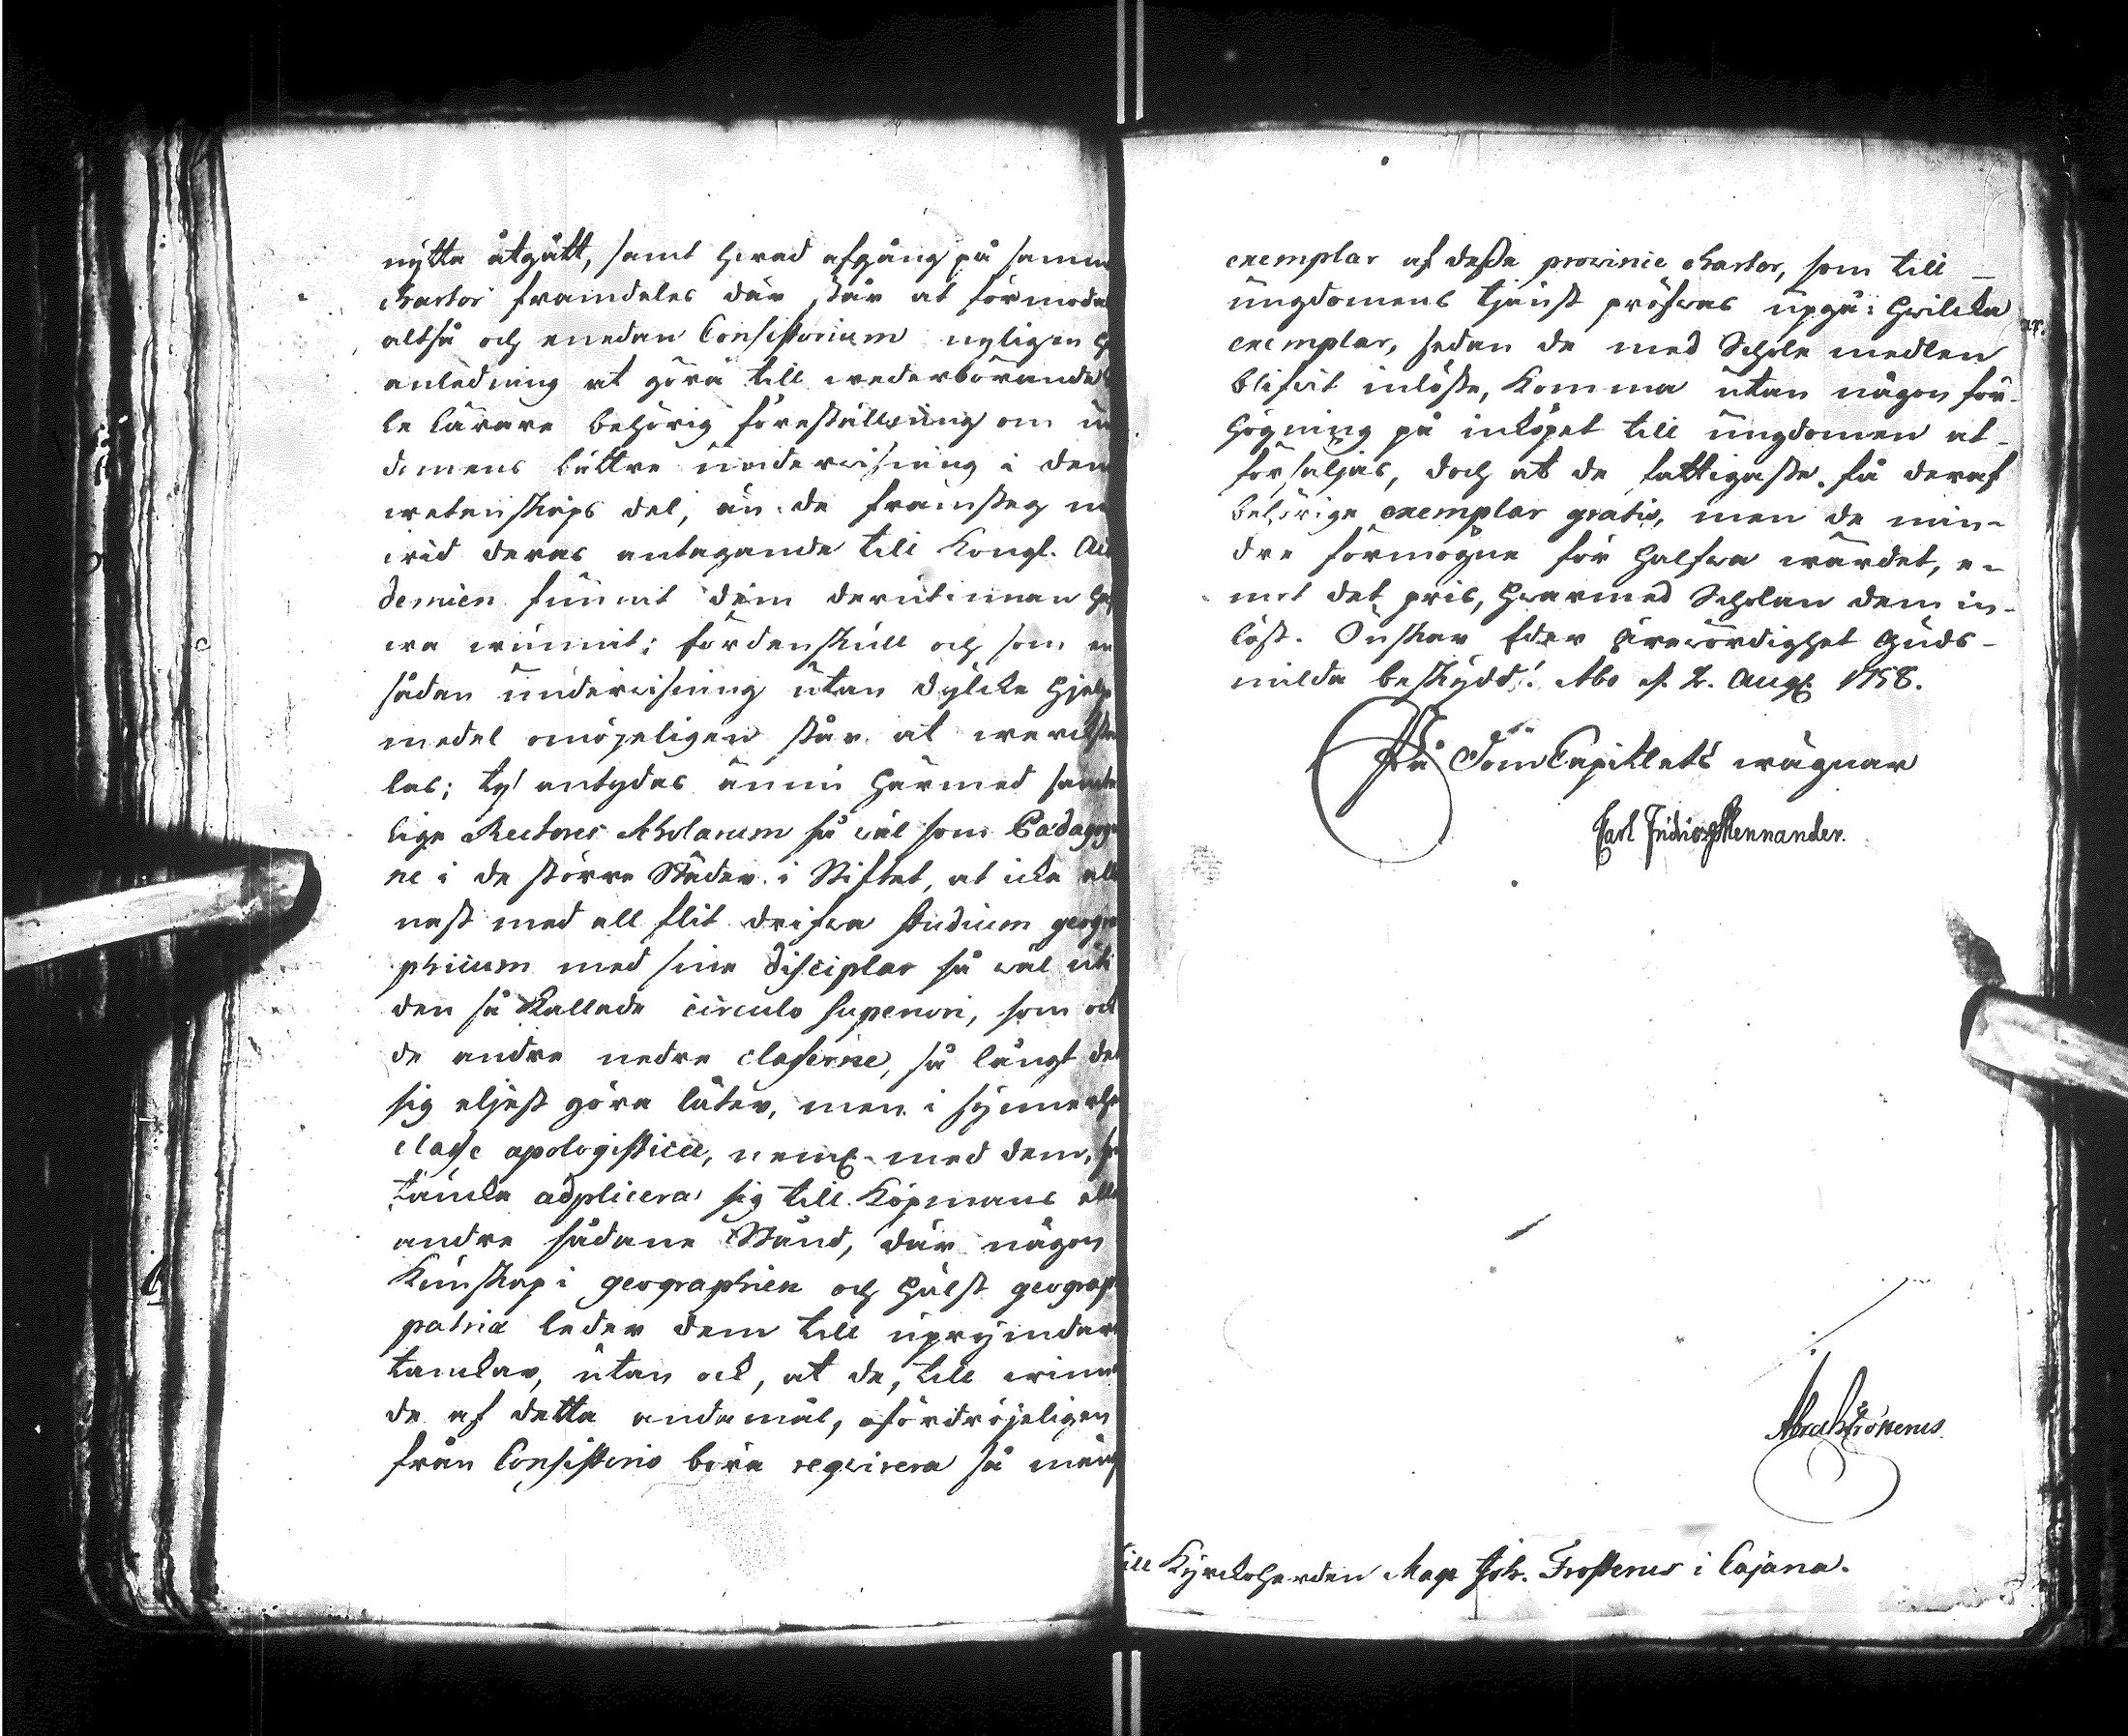 nytta åtgått, samt hwad afgång på samma
chartor framdeles där står at förmoda
altså och emedan Consistorium nyligen h
anledning at göra till wederbörande
le lärare behörig föreställning om un
domens bättre underwisning i den
wetenskaps del, än de framsteg
wid deras antagande till Kongl. Aca
demien funnit dem derutinnan haf
wa wunnit; fördenskull och som en
sådan underwisning utan dylika hjelp
medel omöjeligen står at werckstä
las; ty antydes ännu härmed samte
lige Rectores Scholarum så wäl som Pædagoge
ne i de större Städer i Stiftet, at icke alle
nast med all flit drifwa studium geogra
phicum med sine disciplar så wäl uti
den så kallade circulo superiori, som ock
de andre nedre classerne, så långt det
sig eljest göra låter, men i synnerhe
classe apologistica, neml. med dem, som
täncka adplicera sig till Köpmans elle
andre sådane Stånd, där någon
Kunskap i geographien och hälst geograph
patria leder dem till uprymdare
tanckar, utan ock, at de, till winnan
de af detta ändamål, ofördröjeligen
från Consistorio böra reqwirera så mång
exemplar af dessa provincie chartor, som till
ungdomens tjenst pröfwas upgå: hwilcka
exemplar, sedan de med Schole medlen
blifwit inlöste, komma utan någon för-
högning på inköpet till ungdomen at
försäljas, doch at de fattigaste få deraf
behörige exemplar gratis, men de min-
dre förmögne för halfwa wärdet, e-
mot det pris, hwarmed Scholan dem in-
löst. Önskar Eder Ärewördighet Guds
milda beskydd! Åbo d. 2. Aug. 1758.
På DomCapitlets wägnar
Carl Fridric Mennander.
Till Kyrckoherden Mag. Joh. Frosterus i Cajana.